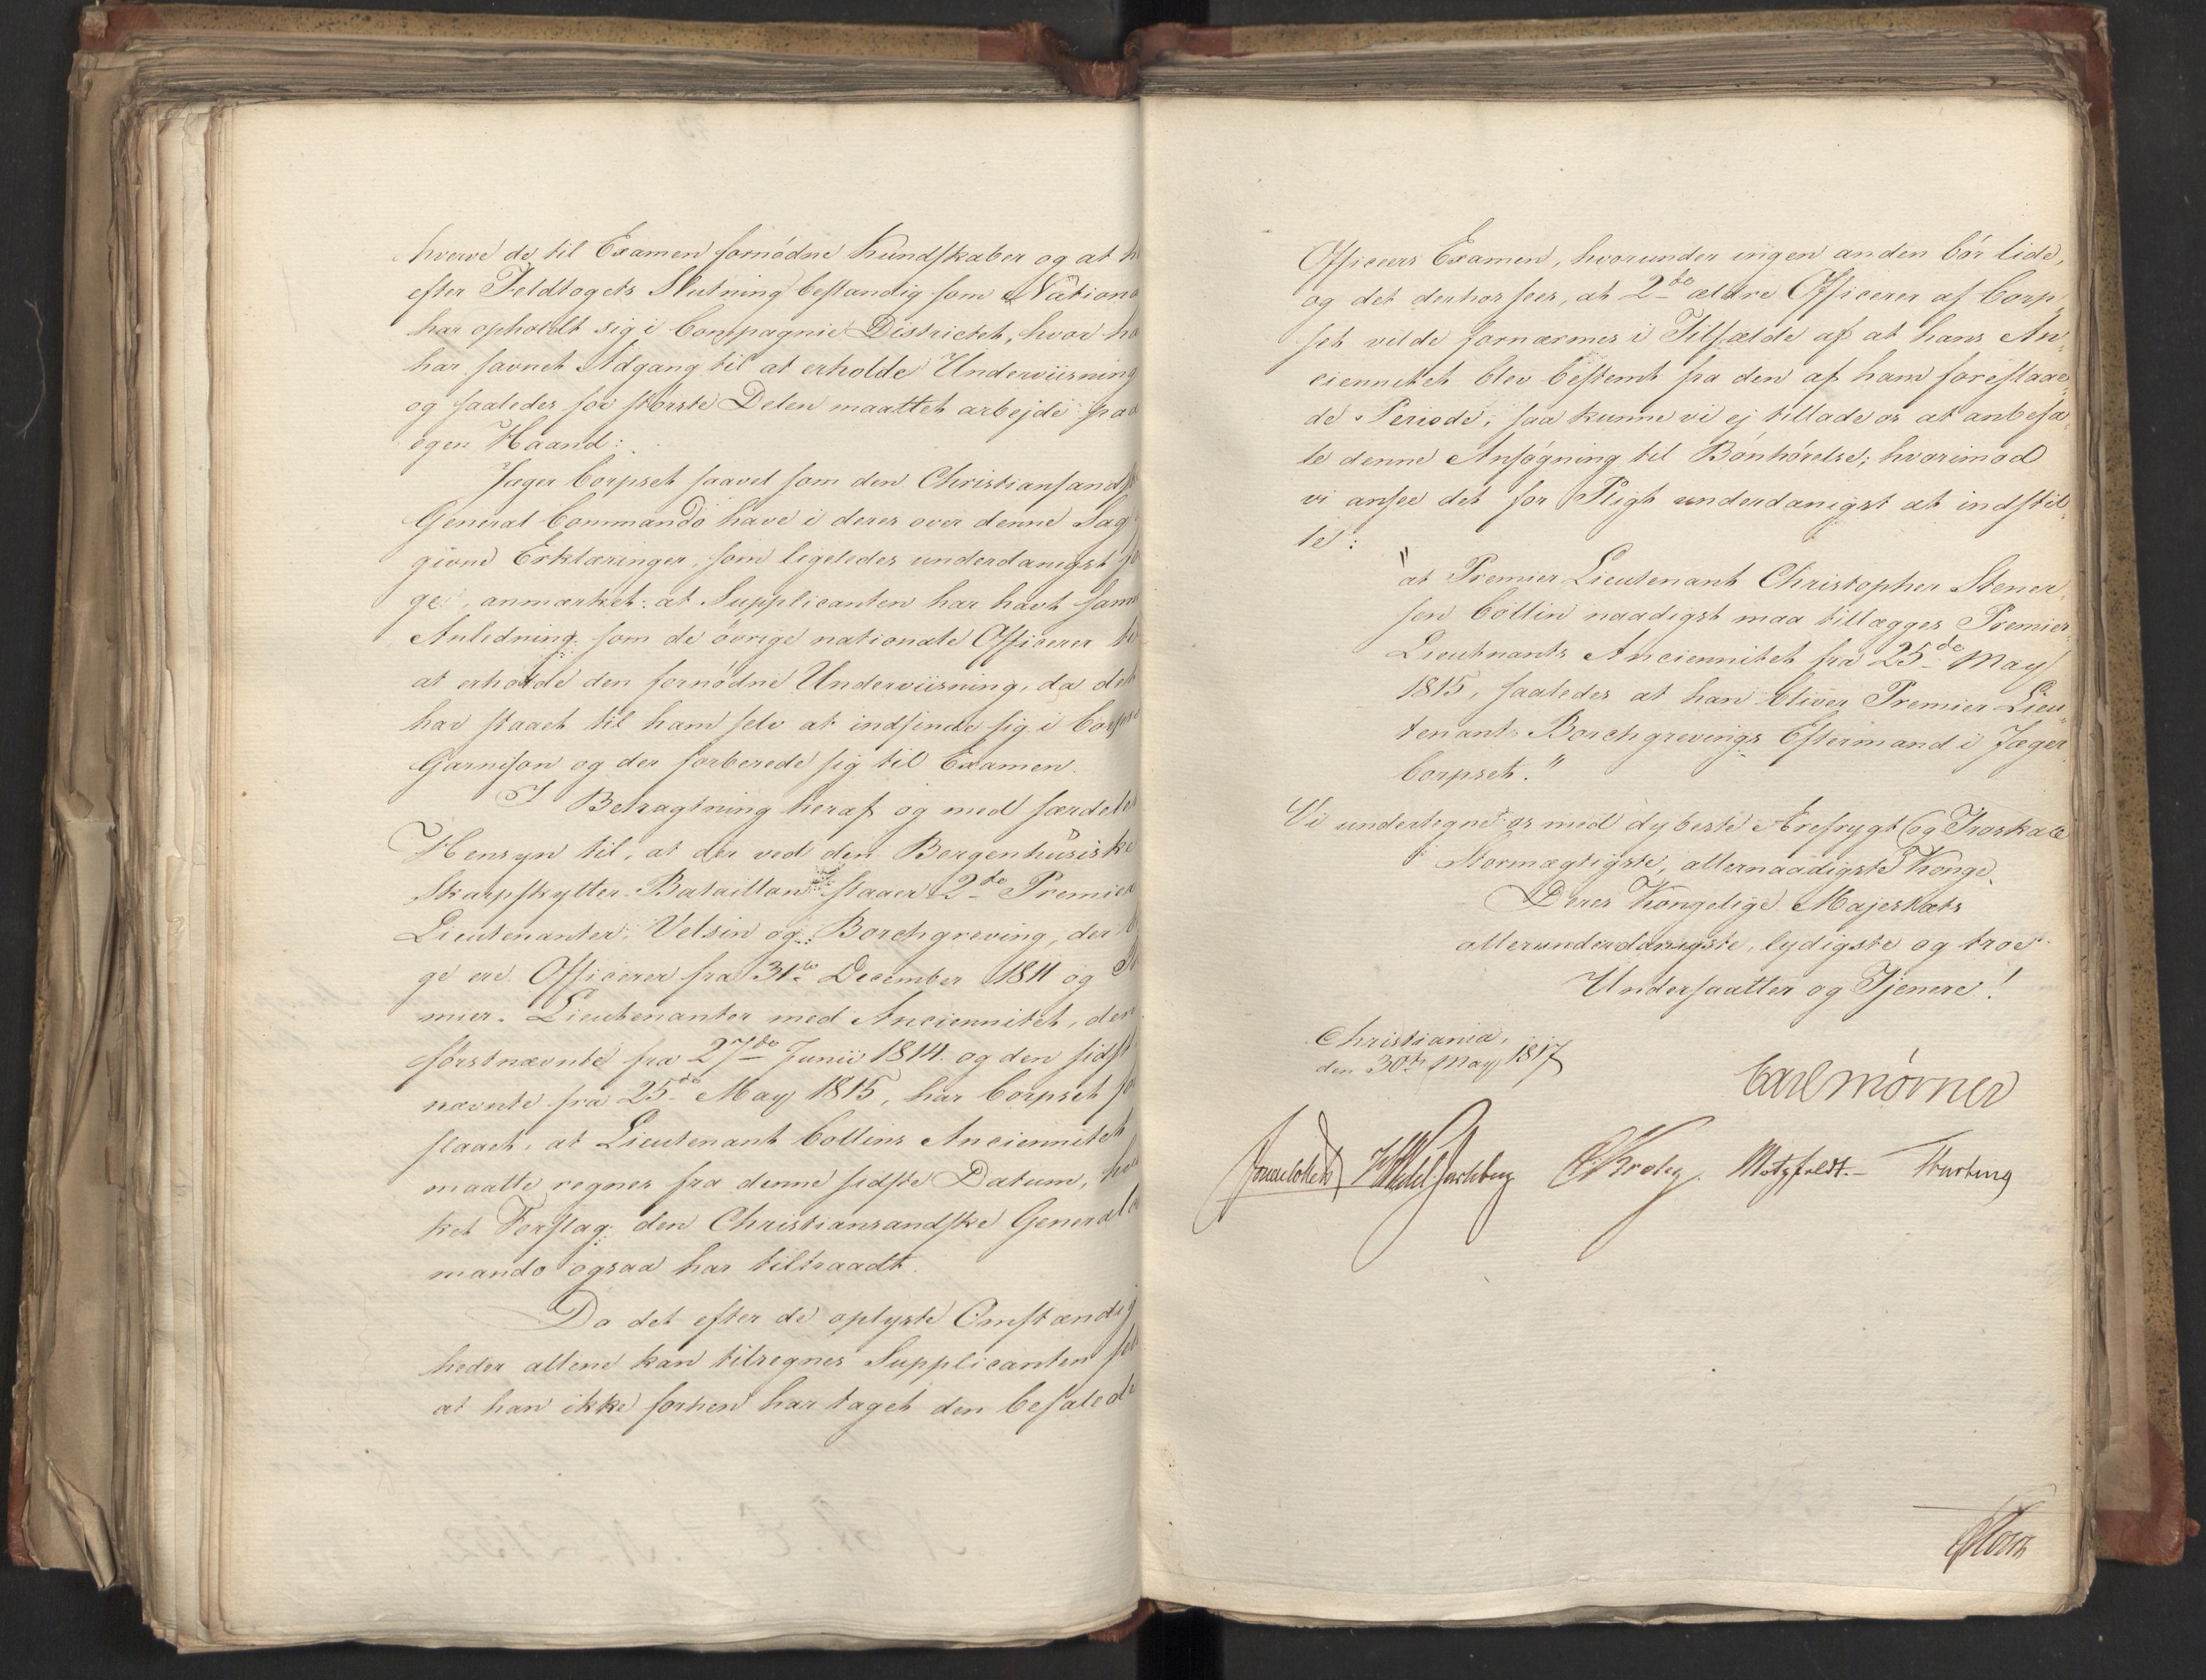 hverve de til Examen fornödne Kundskaber og at h
efter Feldtogets Slutning bestandig som Nationa
har opholdt sig i Compagnie Districtet, hvor ha
har savnet Adgang til at erholde Underviisning
og saaledes for störste Delen maattet arbejde paa
egen Haand:
Jæger Corpset saavel som den Christiansandsk
General Commando have i deres over denne Sag
givne Erklæringer, som ligeledes underdanigst fö
ge, anmærket: at Supplicanten har havt samm
Anledning som de övrige nationale Officerer ti
at erholde den fornödne Underviisning, da det
har staaet til ham selv at indfinde sig i Corpse
Garnison og der forberede sig til Examen.
I Betragtning heraf og med særdeles
Hensyn til, at der ved den Bergenhusiske
Skarpskytter-Bataillon staaer 2de Premier
Lieutenanter, Velsin og Borchgreving, der b
ge ere Officerer fra 31te December 1811 og Pr
mier-Lieutenanter med Anciennitet, den
förstnævnte fra 27de Junii 1814 og den sidst
nævnte fra 25de May 1815, har Corpset fo
slaaet, at Lieutenant Collins Anciennitet
maatte regnes fra denne sidste Datum, hvil
ket Forslag den Christiansandske Generalco
mando ogsaa har tiltraadt.
Da det efter de oplyste Omstændig
heder allene kan tilregnes Supplicanten selv
at han ikke forhen har taget den befalede
Officeers Examen, hvorunder ingen anden bör lide,
og det derhos sees, at 2de ældre Officerer af Corp„
set vilde fornærmes i Tilfælde af at hans An„
ciennitet blev bestemt fra den af ham foreslaae„
de Periode; saa kunne vi ej tillade os at anbefa„
le denne Ansögning til Bönhörelse; hvorimod
vi ansee det for Pligt underdanigst at indstil„
le:
"at Premier Lieutenant Christopher Stener„
sen Collin naadigst maa tillægges Premier„
Lieutnants Anciennitet fra 25de May
1815, saaledes at han bliver Premier Lieu„
tenant Borchgrevings Eftermand i Jæger
Corpset."
Vi undertegne os med dybeste Ærefrygt og Troskab
Stormægtigste, allernaadigste Konge,
Deres Kongelige Majestæts
allerunderdanigste, lydigste og troe
Undersaatter og Tjenere!
Christiania,
den 30te May 1817
Carl Mörner
Sommerhielm HWedel Jarlsberg CKrohg. Motzfeldt.